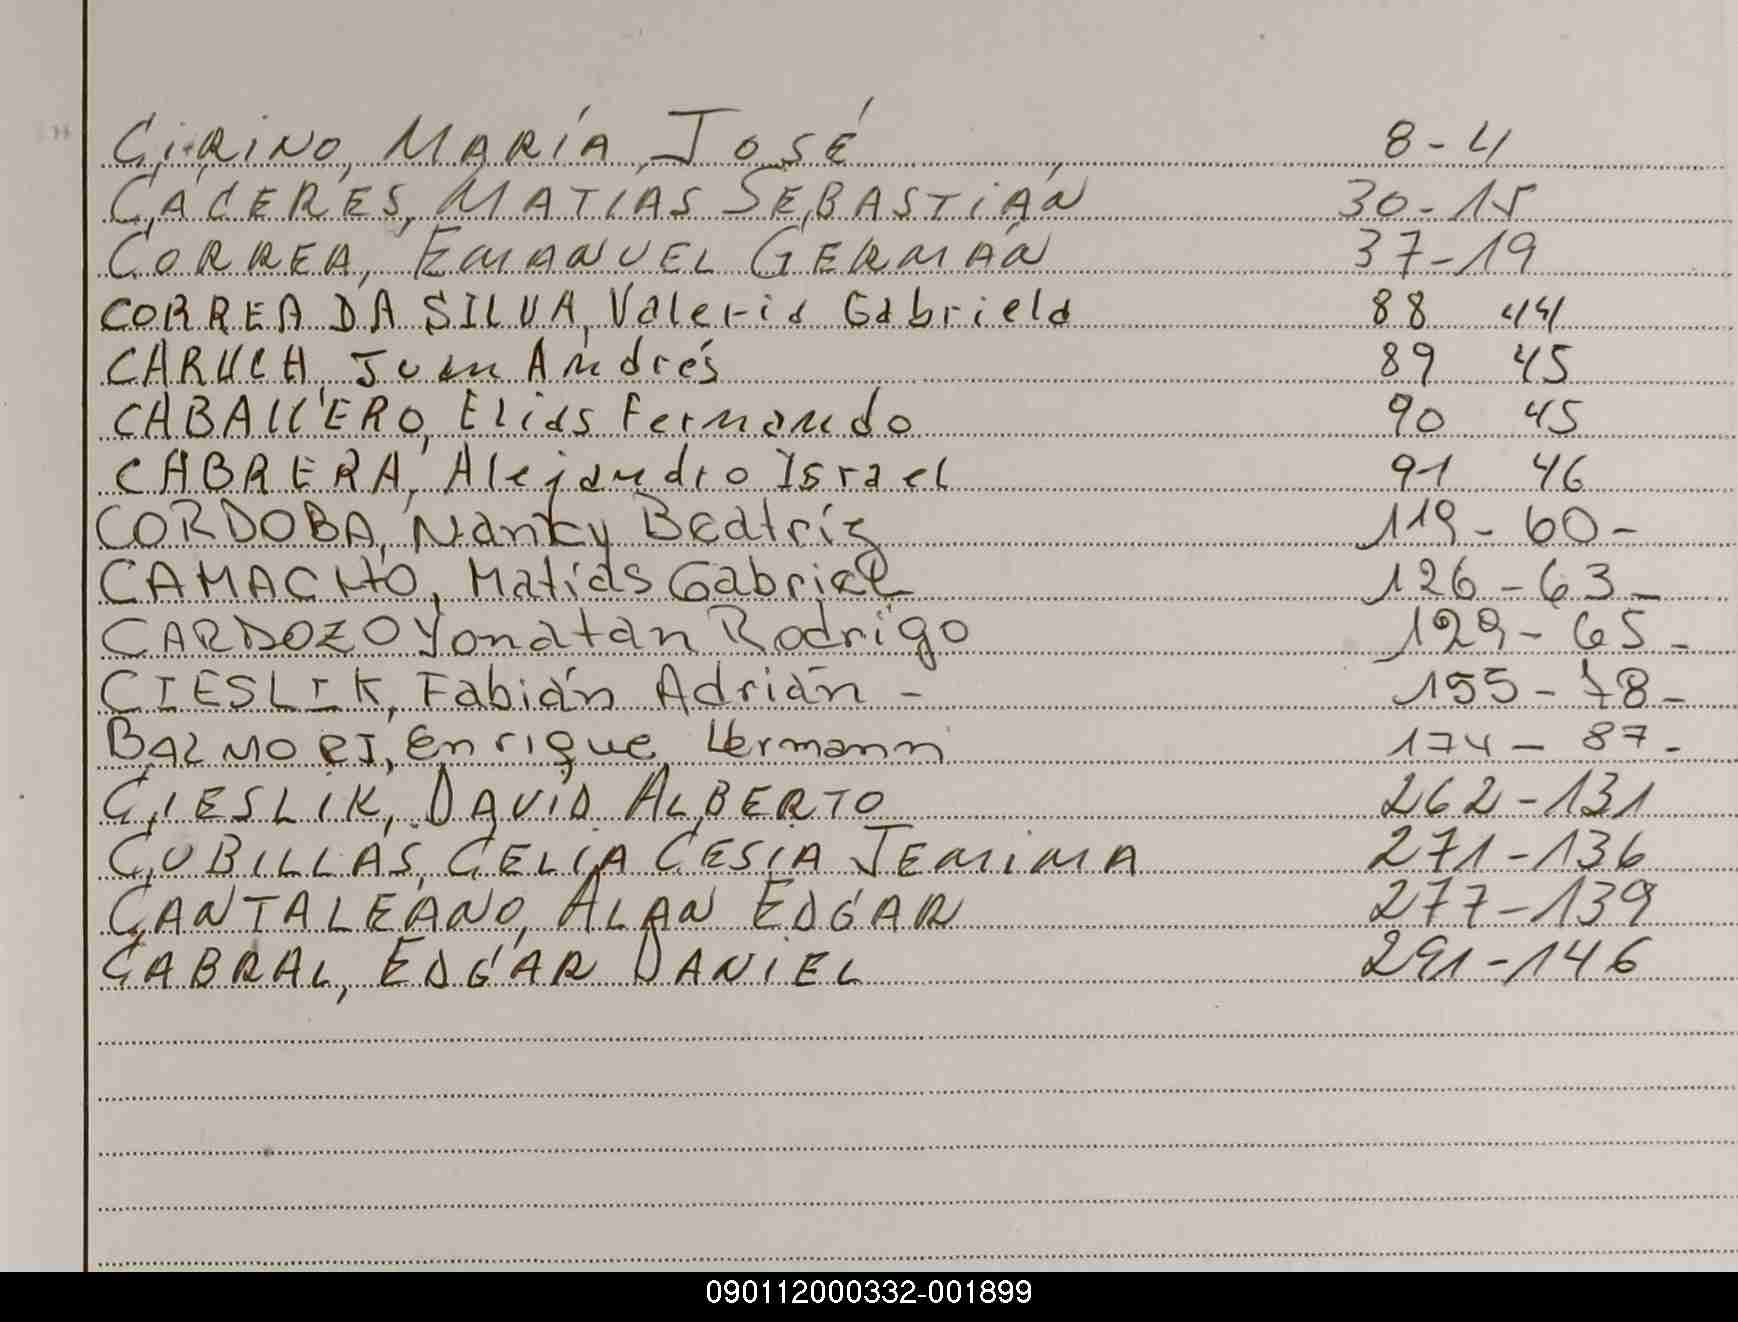 CIRINO, MARÍA JOSÉ 8-4
CÁCERES, MATÍAS SEBASTIÁN 30-15
CORREA, EMANUEL GERMÁN 37-19
CORREA DA SILVA, Valeria Gabriela 88 44
CARUCH, Juan Andrés 89 45
CABALLERO, Elias Fernando 90 45
CABRERA, Alejandro Israel 91 46
CORDOBA, Nancy Beatríz 119-60-
CAMACHO, Matías Gabriel 126-63-
CARDOZO Yonatan Rodrigo 129-65-
CIESLIK, Fabián Adrián - 155-78-
BALMORI, Enrique Hermann 174-87-
CIESLIK, DAVID ALBERTO 262-131
CUBILLAS, CELIA CESIA JEMIMA 271-136
CANTALEANO, ALAN EDGAR 277-139
CABRAL, EDGAR DANIEL 291-146
090112000332-001899